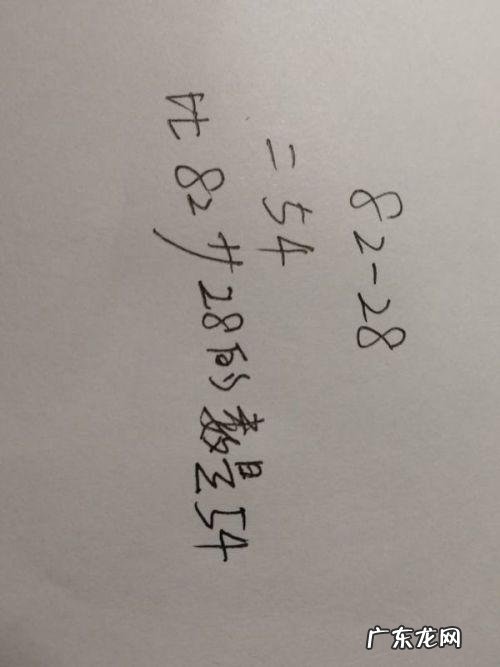 82-28
=54
比82少28的数是54
广东龙网